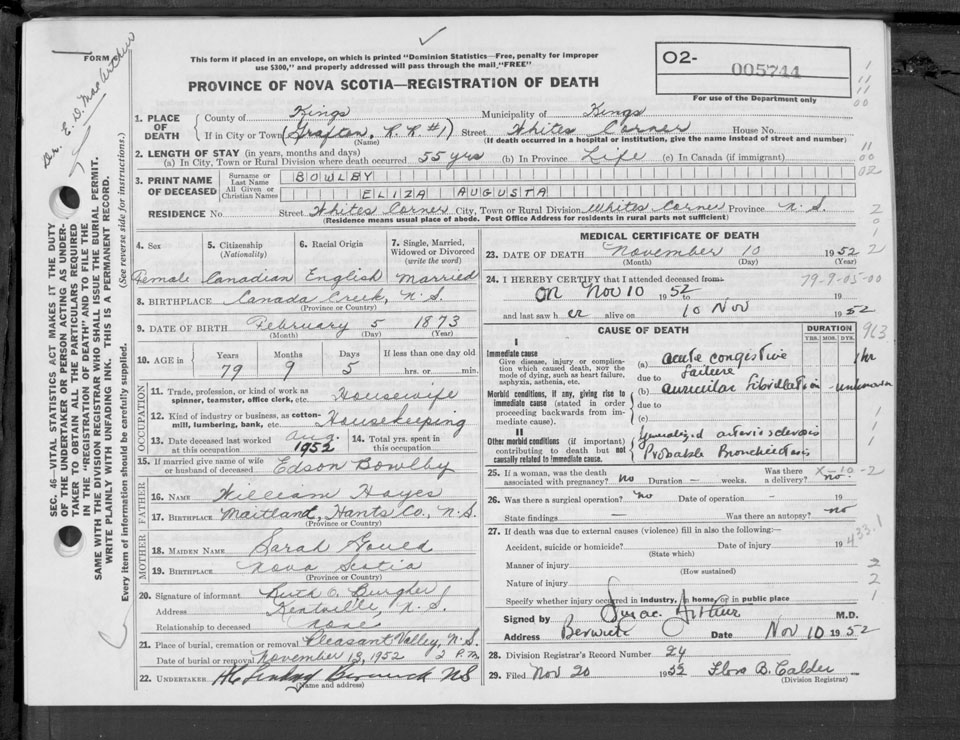 FORM
This form if placed in an envelope, on which is printed "Dominion Statistics—Free, penalty for improper
use $300," and properly addressed will pass through the mail "FREE"
PROVINCE OF NOVA SCOTIA—REGISTRATION OF DEATH
O2-
005744
For use of the Department only
Dr. E. D. MacArthur
1. PLACE OF DEATH
County of Kings Municipality of Kings
If in City or Town (Grafton, R.R #1) Street Whites Corner House No.
(Name) (If death occurred in a hospital or institution, give the name instead of street and number)
2. LENGTH OF STAY (in years, months and days)
(a) In City, Town or Rural Division where death occurred 55 yrs (b) In Province Life (c) In Canada (if immigrant)
3. PRINT NAME OF DECEASED
Surname or Last Name BOWLBY
All Given or Christian Names ELIZA AUGUSTA
RESIDENCE No. Street Whites Corner City, Town or Rural Division Whites Corner Province N.S.
(Residence means usual place of abode. Post Office Address for residents in rural parts not sufficient)
4. Sex 5. Citizenship (Nationality) 6. Racial Origin 7. Single, Married, Widowed or Divorced (write the word)
Female Canadian English Married
8. BIRTHPLACE Canada Creek, N.S.
(Province or Country)
9. DATE OF BIRTH February 5 1873
(Month) (Day) (Year)
10. AGE in Years Months Days If less than one day old
79 9 5 hrs. or min.
OCCUPATION
11. Trade, profession, or kind of work as spinner, teamster, office clerk, etc. Housewife
12. Kind of industry or business, as cotton-mill, lumbering, bank, etc. Housekeeping
13. Date deceased last worked at this occupation Aug. 1952 14. Total yrs. spent in this occupation
15. If married give name of wife or husband of deceased Edson Bowlby
FATHER
16. NAME William Hayes
17. BIRTHPLACE Maitland, Hants Co., N.S.
(Province or Country)
MOTHER
18. MAIDEN NAME Sarah Gould
19. BIRTHPLACE Nova Scotia
(Province or Country)
20. Signature of informant Ruth O. Burgher
Address Kentville, N.S.
Relationship to deceased none
21. Place of burial, cremation or removal Pleasant Valley, N.S.
Date of burial or removal November 13, 1952 2 P.M.
22. UNDERTAKER Berwick NS
(Name and address)
MEDICAL CERTIFICATE OF DEATH
23. DATE OF DEATH November 10 1952
(Month) (Day) (Year)
24. I HEREBY CERTIFY that I attended deceased from
on Nov 10 1952 to 19
and last saw h er alive on 10 Nov 1952
79-9-05-00
CAUSE OF DEATH
DURATION
YRS. MOS. DYS.
I
Immediate cause
Give disease, injury or complication which caused death, NOT the mode of dying, such as heart failure, asphyxia, asthenia, etc.
(a) acute congestive failure 1 hr
due to
Morbid conditions, if any, giving rise to immediate cause (stated in order proceeding backwards from immediate cause).
(b) auricular fibrillation - unknown
due to
(c)
II
Other morbid conditions (if important) contributing to death but not causally related to immediate cause.
generalized arteriosclerosis
Probable Bronchiectasis
25. If a woman, was the death associated with pregnancy? no Duration — weeks. Was there a delivery? no.
X-10-2
26. Was there a surgical operation? no Date of operation - 19
State findings — Was there an autopsy? no
27. If death was due to external causes (violence) fill in also the following:—
Accident, suicide or homicide? Date of injury 19
(State which)
433.1
Manner of injury
(How sustained)
Nature of injury
Specify whether injury occurred in industry, in home, or in public place
Signed by M.D.
Address Berwick Date Nov 10 1952
28. Division Registrar's Record Number 24
29. Filed Nov 20 1952 Flora B. Calder
(Division Registrar)
SEC. 46—VITAL STATISTICS ACT MAKES IT THE DUTY
OF THE UNDERTAKER OR PERSON ACTING AS UNDER-
TAKER TO OBTAIN ALL THE PARTICULARS REQUIRED
IN THE "REGISTRATION OF DEATH" AND TO FILE THE
SAME WITH THE DIVISION REGISTRAR WHO SHALL ISSUE THE BURIAL PERMIT.
WRITE PLAINLY WITH UNFADING INK. THIS IS A PERMANENT RECORD.
Every item of information should be carefully supplied. (See reverse side for instructions.)